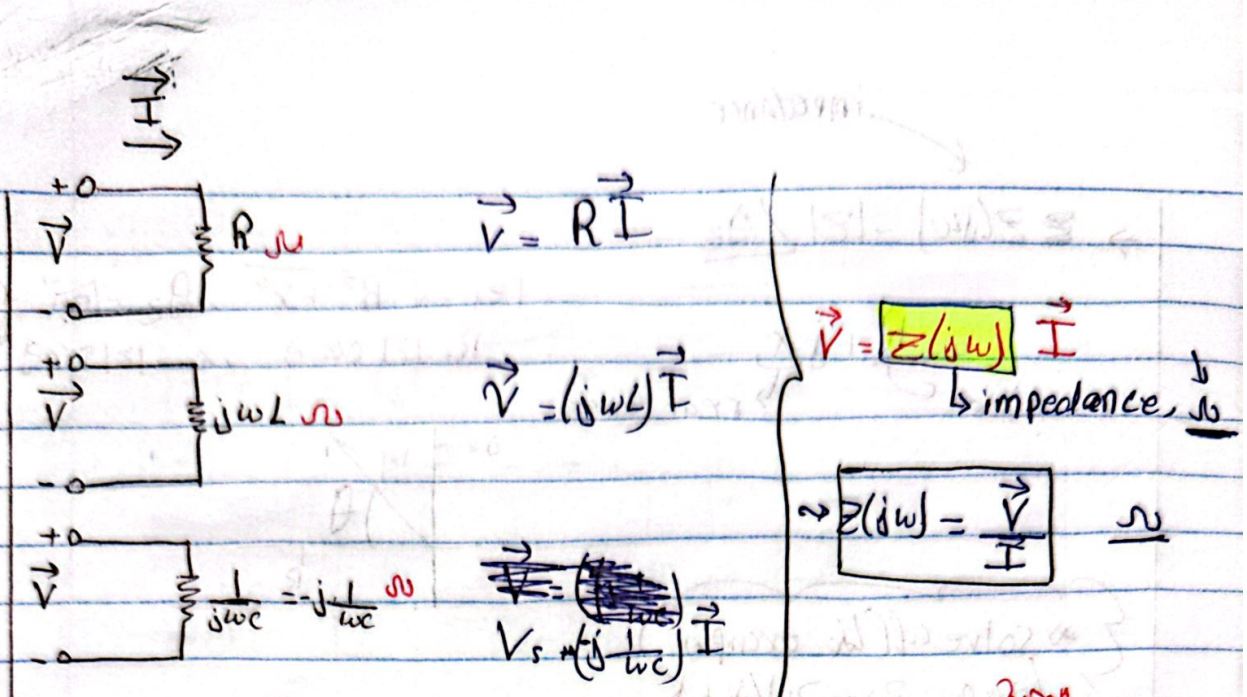 I⃗
+
V⃗ R Ω V⃗ = R I⃗
-
+
V⃗ jωL Ω V⃗ = (jωL) I⃗
-
+
V⃗ 1/jωc = -j 1/ωc Ω
V = (-j 1/ωc) I⃗
-
V⃗ = Z(jω) I⃗
↳ impedance, Ω
Z(jω) = V⃗/I⃗ Ω